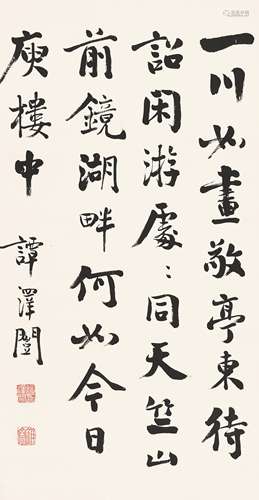 一川如畫敬亭東待
詔闲游處〻同天竺山
前鏡湖畔何如今日
庾樓中
譚澤闓